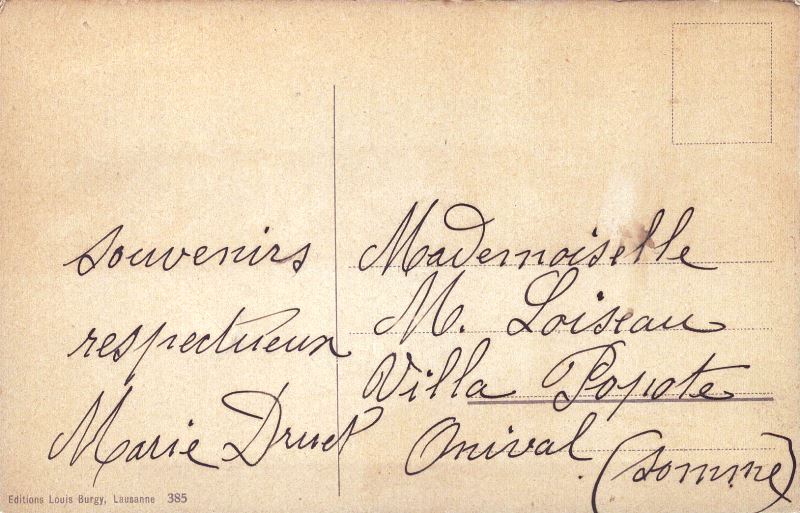 souvenirs
respectueux
Marie Druet
Mademoiselle
M. Loiseau
Villa Popote
Onival. (somme)
Editions Louis Burgy, Lausanne 385